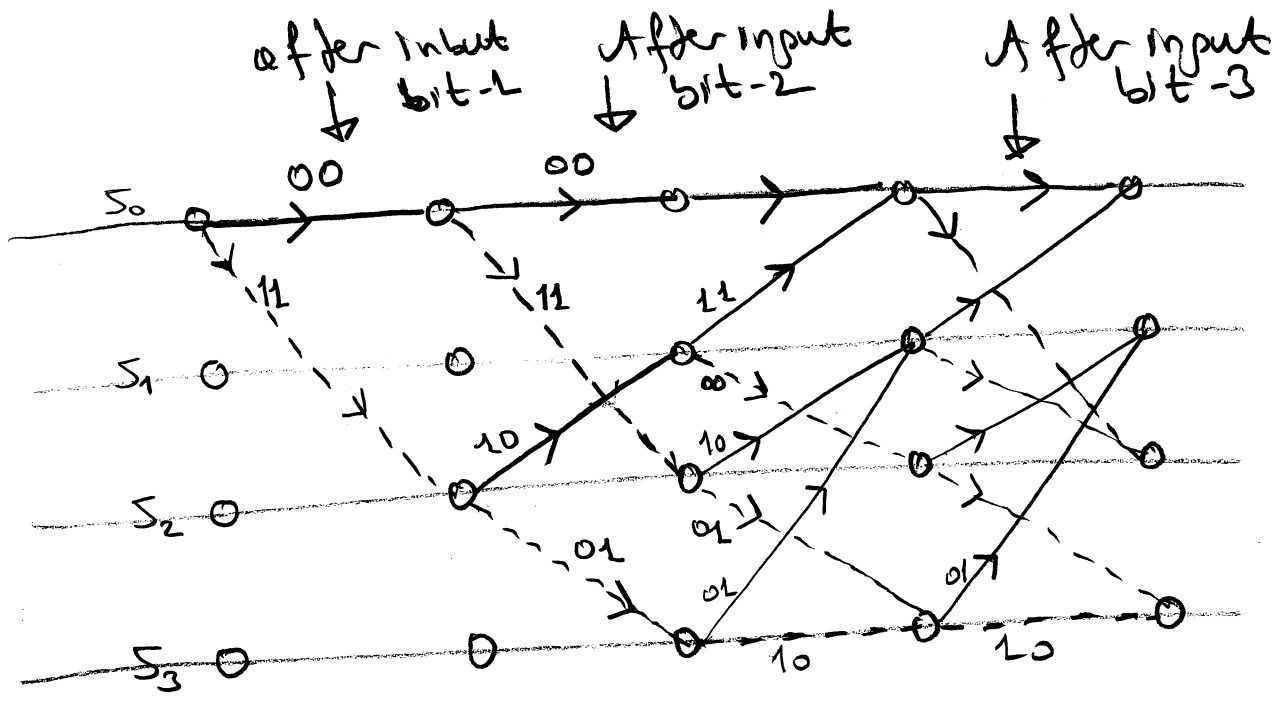 after inbut
bit-1
After input
bit-2
After input
bit-3
00
00
S0
11
11
11
S1
00
10
10
S2
01
01
01
01
S3
10
10